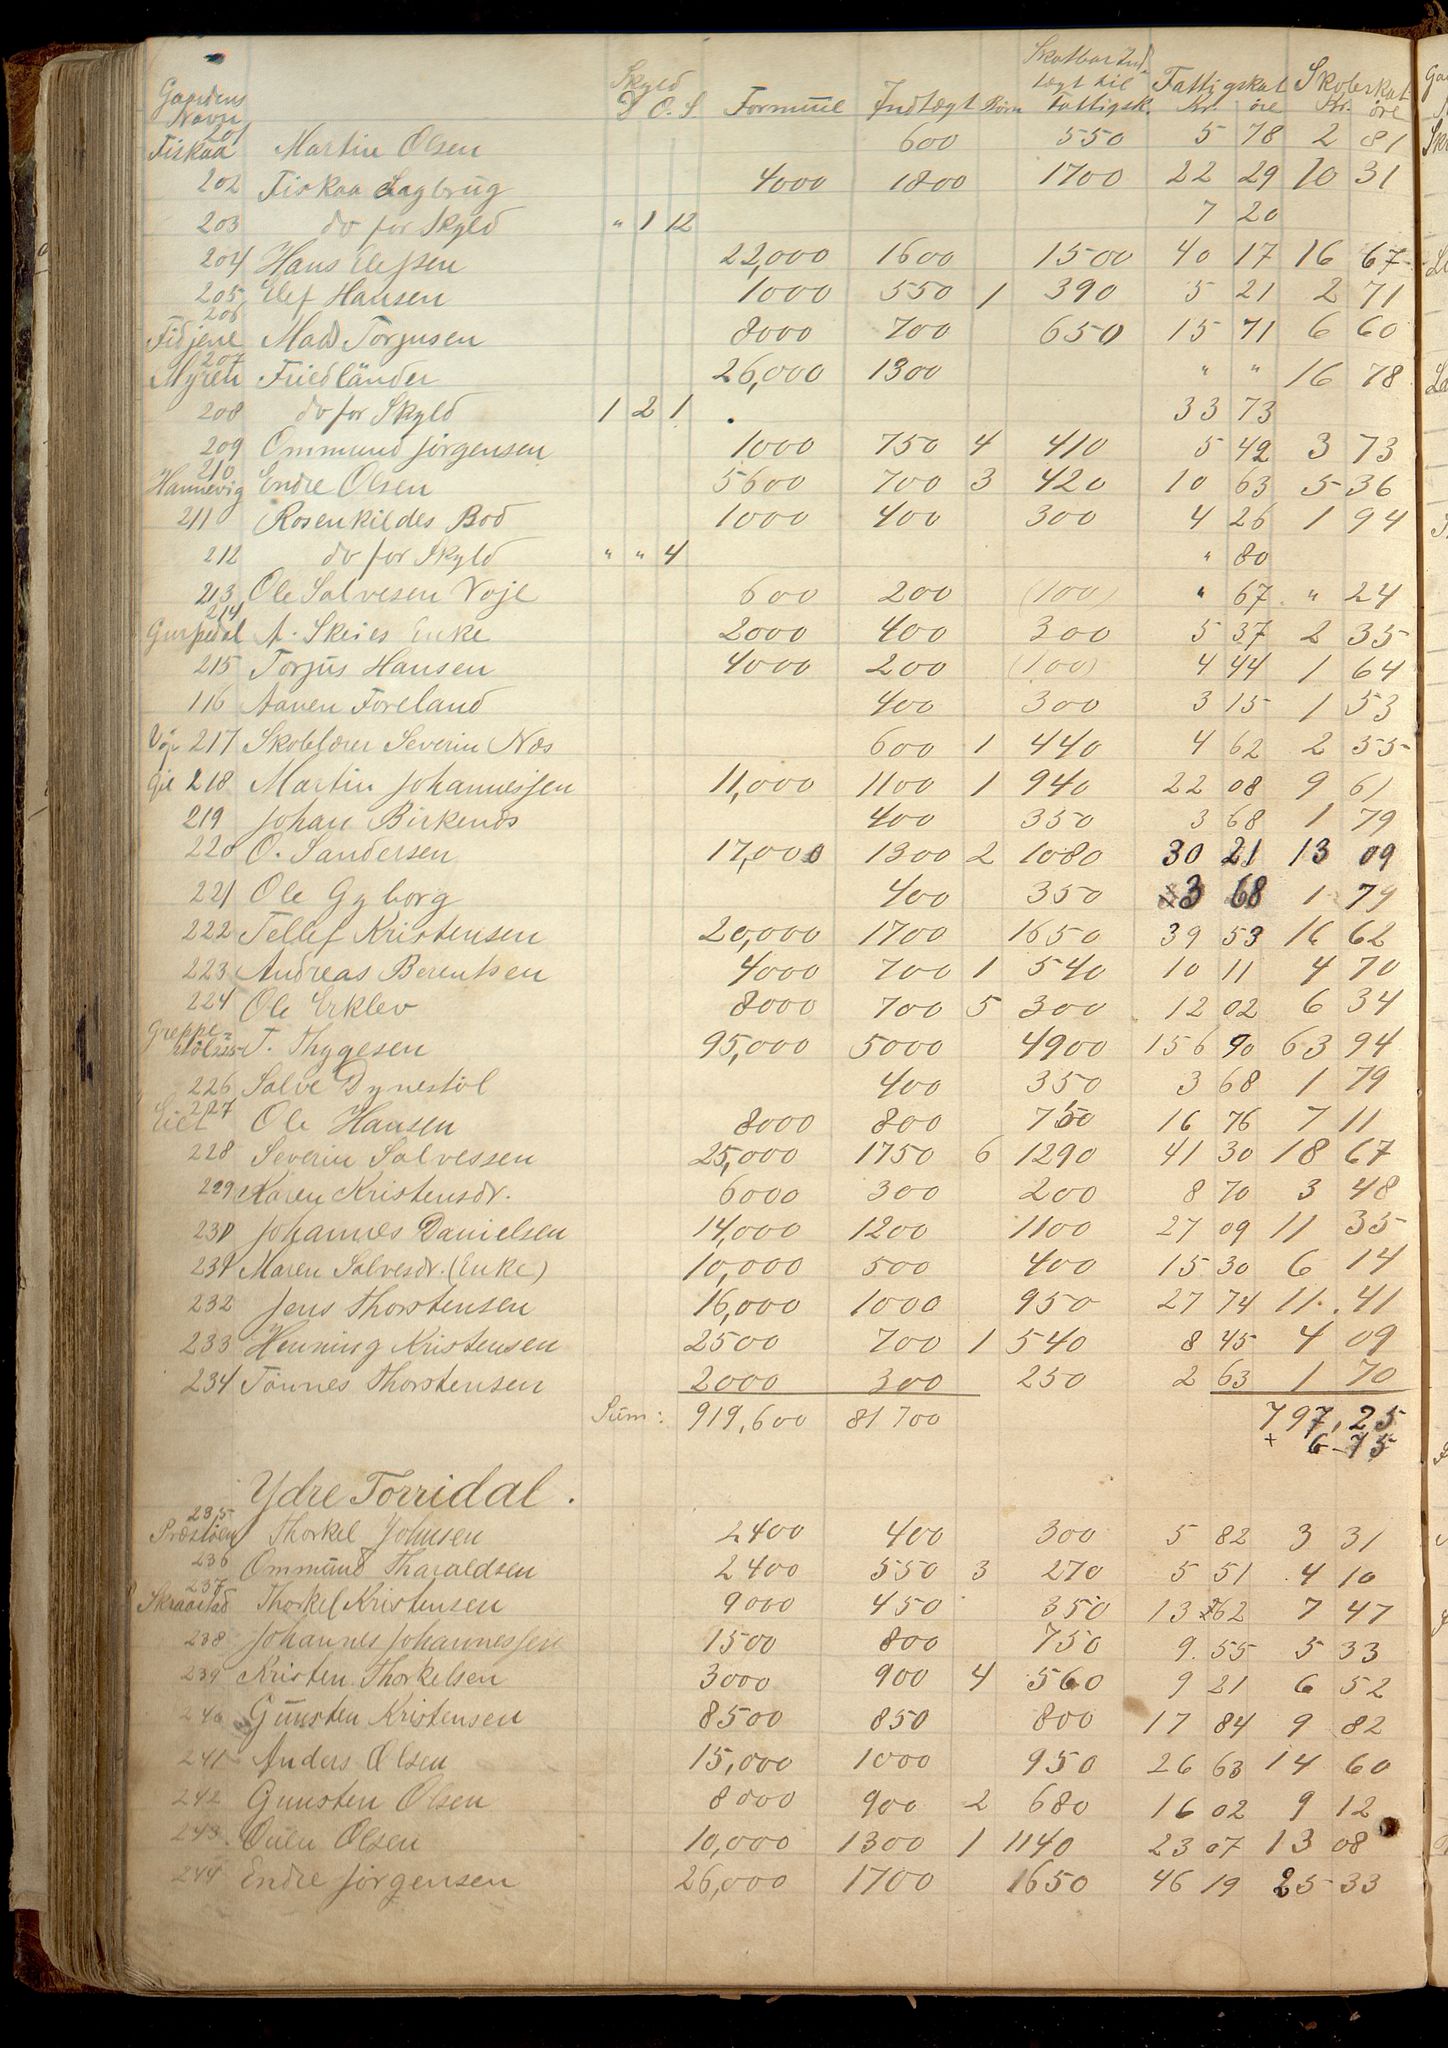 Gaardens Navn | Skyld D O. S | Formue | Indtægt | Børn | Skatbar Indtægt til Fattigsk. | Fattigskat Kr. øre | Skoleskat Kr. øre
Fiskaa 201 Martin Olsen 600 550 5 78 2 81
202 Fiskaa Sagbrug 4000 1800 1700 22 29 10 31
203 do for Skyld " 1 12 7 20
204 Hans Elefsen 22,000 1600 1500 40 17 16 67
205 Elef Hansen 1000 550 1 390 5 21 2 71
Fidjene 206 Mads Torjusen 8000 700 650 15 71 6 60
Myren 207 Friedländer 26,000 1300 " " 16 78
208 do for Skyld 1 2 1 33 73
209 Ommund Jørgensen 1000 750 4 410 5 42 3 73
Hannevig 210 Endre Olsen 5600 700 3 420 10 63 5 36
211 Rosenkildes Bod 1000 400 300 4 26 1 94
212 do for Skyld " " 4 " 80
213 Ole Salvesen Voje 600 200 (100) " 67 " 24
214 A. Skeies Enke 2000 400 300 5 37 2 35
215 Torjus Hansen 4000 200 (100) 4 44 1 64
116 Aanen Foreland 400 300 3 15 1 53
217 Skolelærer Severin Næs 600 1 440 4 62 2 55
218 Martin Johannesen 11,000 1100 1 940 22 08 9 61
219 Johan Birkends 400 350 3 68 1 79
220 O. Sandersen 17,000 1300 2 1080 30 21 13 09
221 Ole Gyborg 400 350 3 68 1 79
222 Tellef Kristensen 20,000 1700 1650 39 53 16 62
223 Andreas Berentsen 4000 700 1 540 10 11 4 70
224 Ole Erklev 8000 700 5 300 12 02 6 34
T. Thygesen 95,000 5000 4900 156 90 63 94
226 Salve Dynestöl 400 350 3 68 1 79
Eiet 227 Ole Hansen 8000 800 750 16 76 7 11
228 Severin Salvessen 25,000 1750 6 1290 41 30 18 67
229 Karen Kristensdr. 6000 300 200 8 70 3 48
230 Johannes Danielsen 14,000 1200 1100 27 09 11 35
231 Maren Salvesdr. (Enke) 10,000 500 400 15 30 6 14
232 Jens Thorstensen 16,000 1000 950 27 74 11 41
233 Henning Kristensen 2500 700 1 540 8 45 4 09
234 Tönnes Thorstensen 2000 300 250 2 63 1 70
Sum: 919,600 81700 797,25
+ 6-75
Ydre Torridal.
Præstöen 235 Thorkel Johnsen 2400 400 300 5 82 3 31
236 Ommund Tharaldsen 2400 550 3 270 5 51 4 10
Skraastad 237 Thorkel Kristensen 9000 450 350 13 62 7 47
238 Johannes Johannessen 1500 800 750 9 55 5 33
239 Kristen Thorkelsen 3000 900 4 560 9 21 6 52
240 Gunsten Kristensen 8500 850 800 17 84 9 82
241 Anders Olsen 15,000 1000 950 26 63 14 60
242 Gunsten Olsen 8000 900 2 680 16 02 9 12
243 Ouen Olsen 10,000 1300 1 1140 23 07 13 08
244 Endre Jørgensen 26,000 1700 1650 46 19 25 33